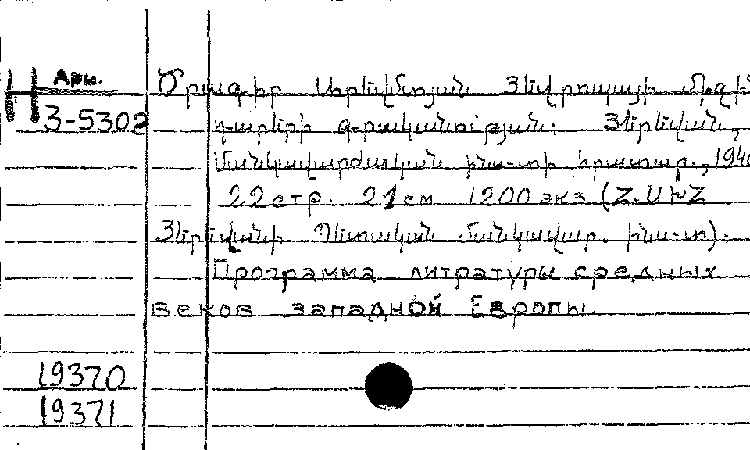 Арм.
Ծրագիր Արեվմտյան Յեվրոպայի միջին
3-5302
դարերի գրականության: Յերեվան,
Մանկավարժական ինս-տի հրատար., 1940
22 стр. 21 см 1200 экз (ՀՍԽՀ
Յերեվանի Պետական մանկավար. ինս-տ).
Программа литратуры средных
веков западной Европы
19370
19371